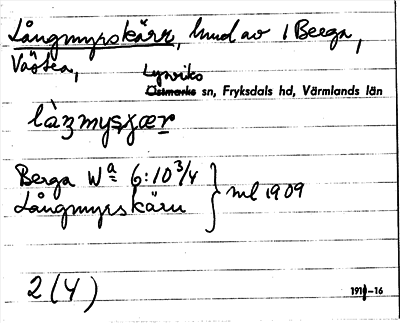 Långmyrskärr, hmd av 1 Berga,
Västra,
Lysviks
Östmarks sn, Fryksdals hd, Värmlands län
làŋmysçær
Berga Wª 6:10 3/4
Långmyrskärn } ml 1909
2 (4)
191 -16